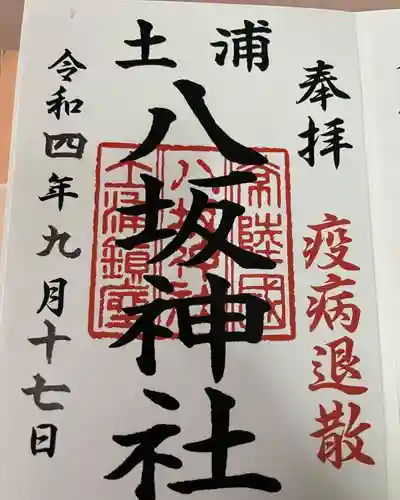 奉拝
疫病退散
土浦
八坂神社
常陸國
八坂神社
土浦鎮座
令和四年九月十七日